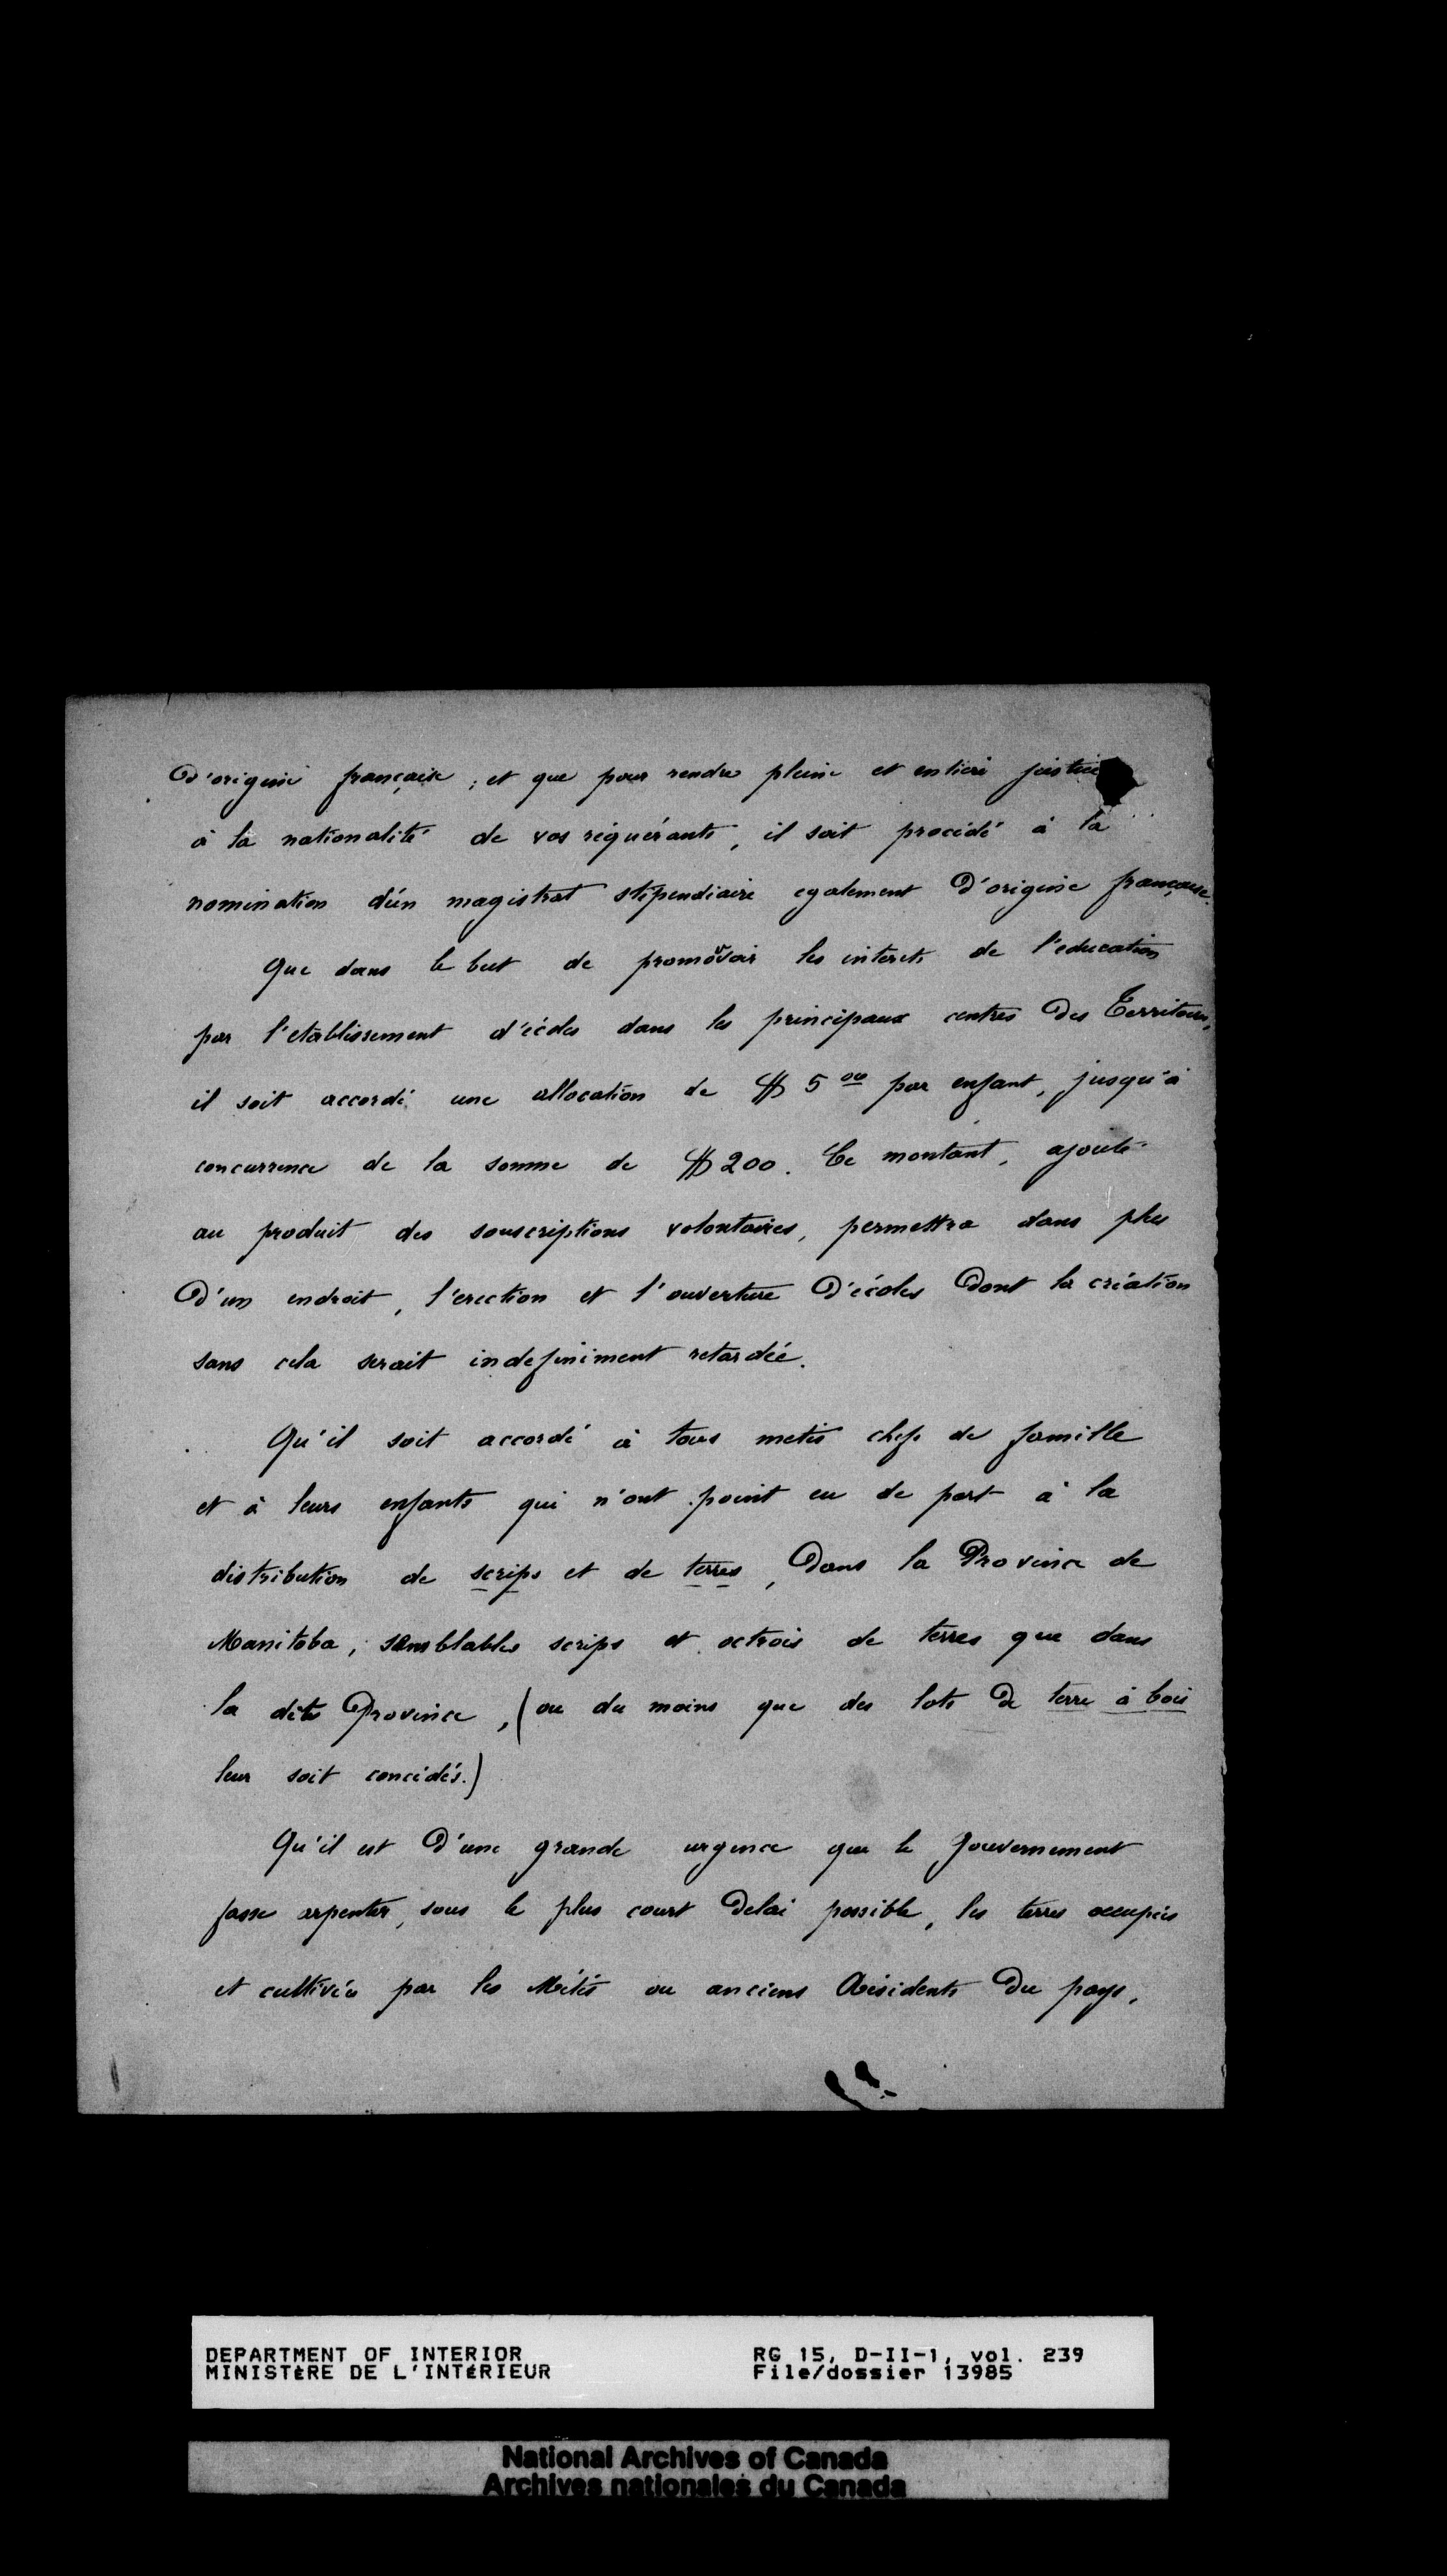 D'origine française ; et que pour rendre pleine et entière justice
à la nationalité de vos requérants, il soit procédé à la
nomination d'un magistrat stipendiaire egalement D'origine française.
Que dans le but de promouvoir les interets de l'education
par l'etablissement d'écoles dans les principaux centres Des Territoires,
il soit accordé une allocation de $ 5 00 par enfant, jusqu'à
concurrence de la somme de $ 200. Ce montant, ajouté
au produit des souscriptions volontaires, permettra dans plus
D'un endroit, l'erection et l'ouverture D'écoles Dont la création
sans cela serait indefiniment retardée.
Qu'il soit accordé à tous metis chefs de famille
et à leurs enfants qui n'ont point eu de part à la
distribution de scrips et de terres, Dans la Province de
Manitoba, semblables scrips et octrois de terres que dans
la dite Province, (ou du moins que des lots De terre à bois
leur soit concédés.)
Qu'il est D'une grande urgence que le Gouvernement
fasse arpenter, sous le plus court Delai possible, les terres occupées
et cultivées par les Métis ou anciens Résidents Du pays,
DEPARTMENT OF INTERIOR
MINISTÈRE DE L'INTÉRIEUR
RG 15, D-II-1, vol. 239
File/dossier 13985
National Archives of Canada
Archives nationales du Canada